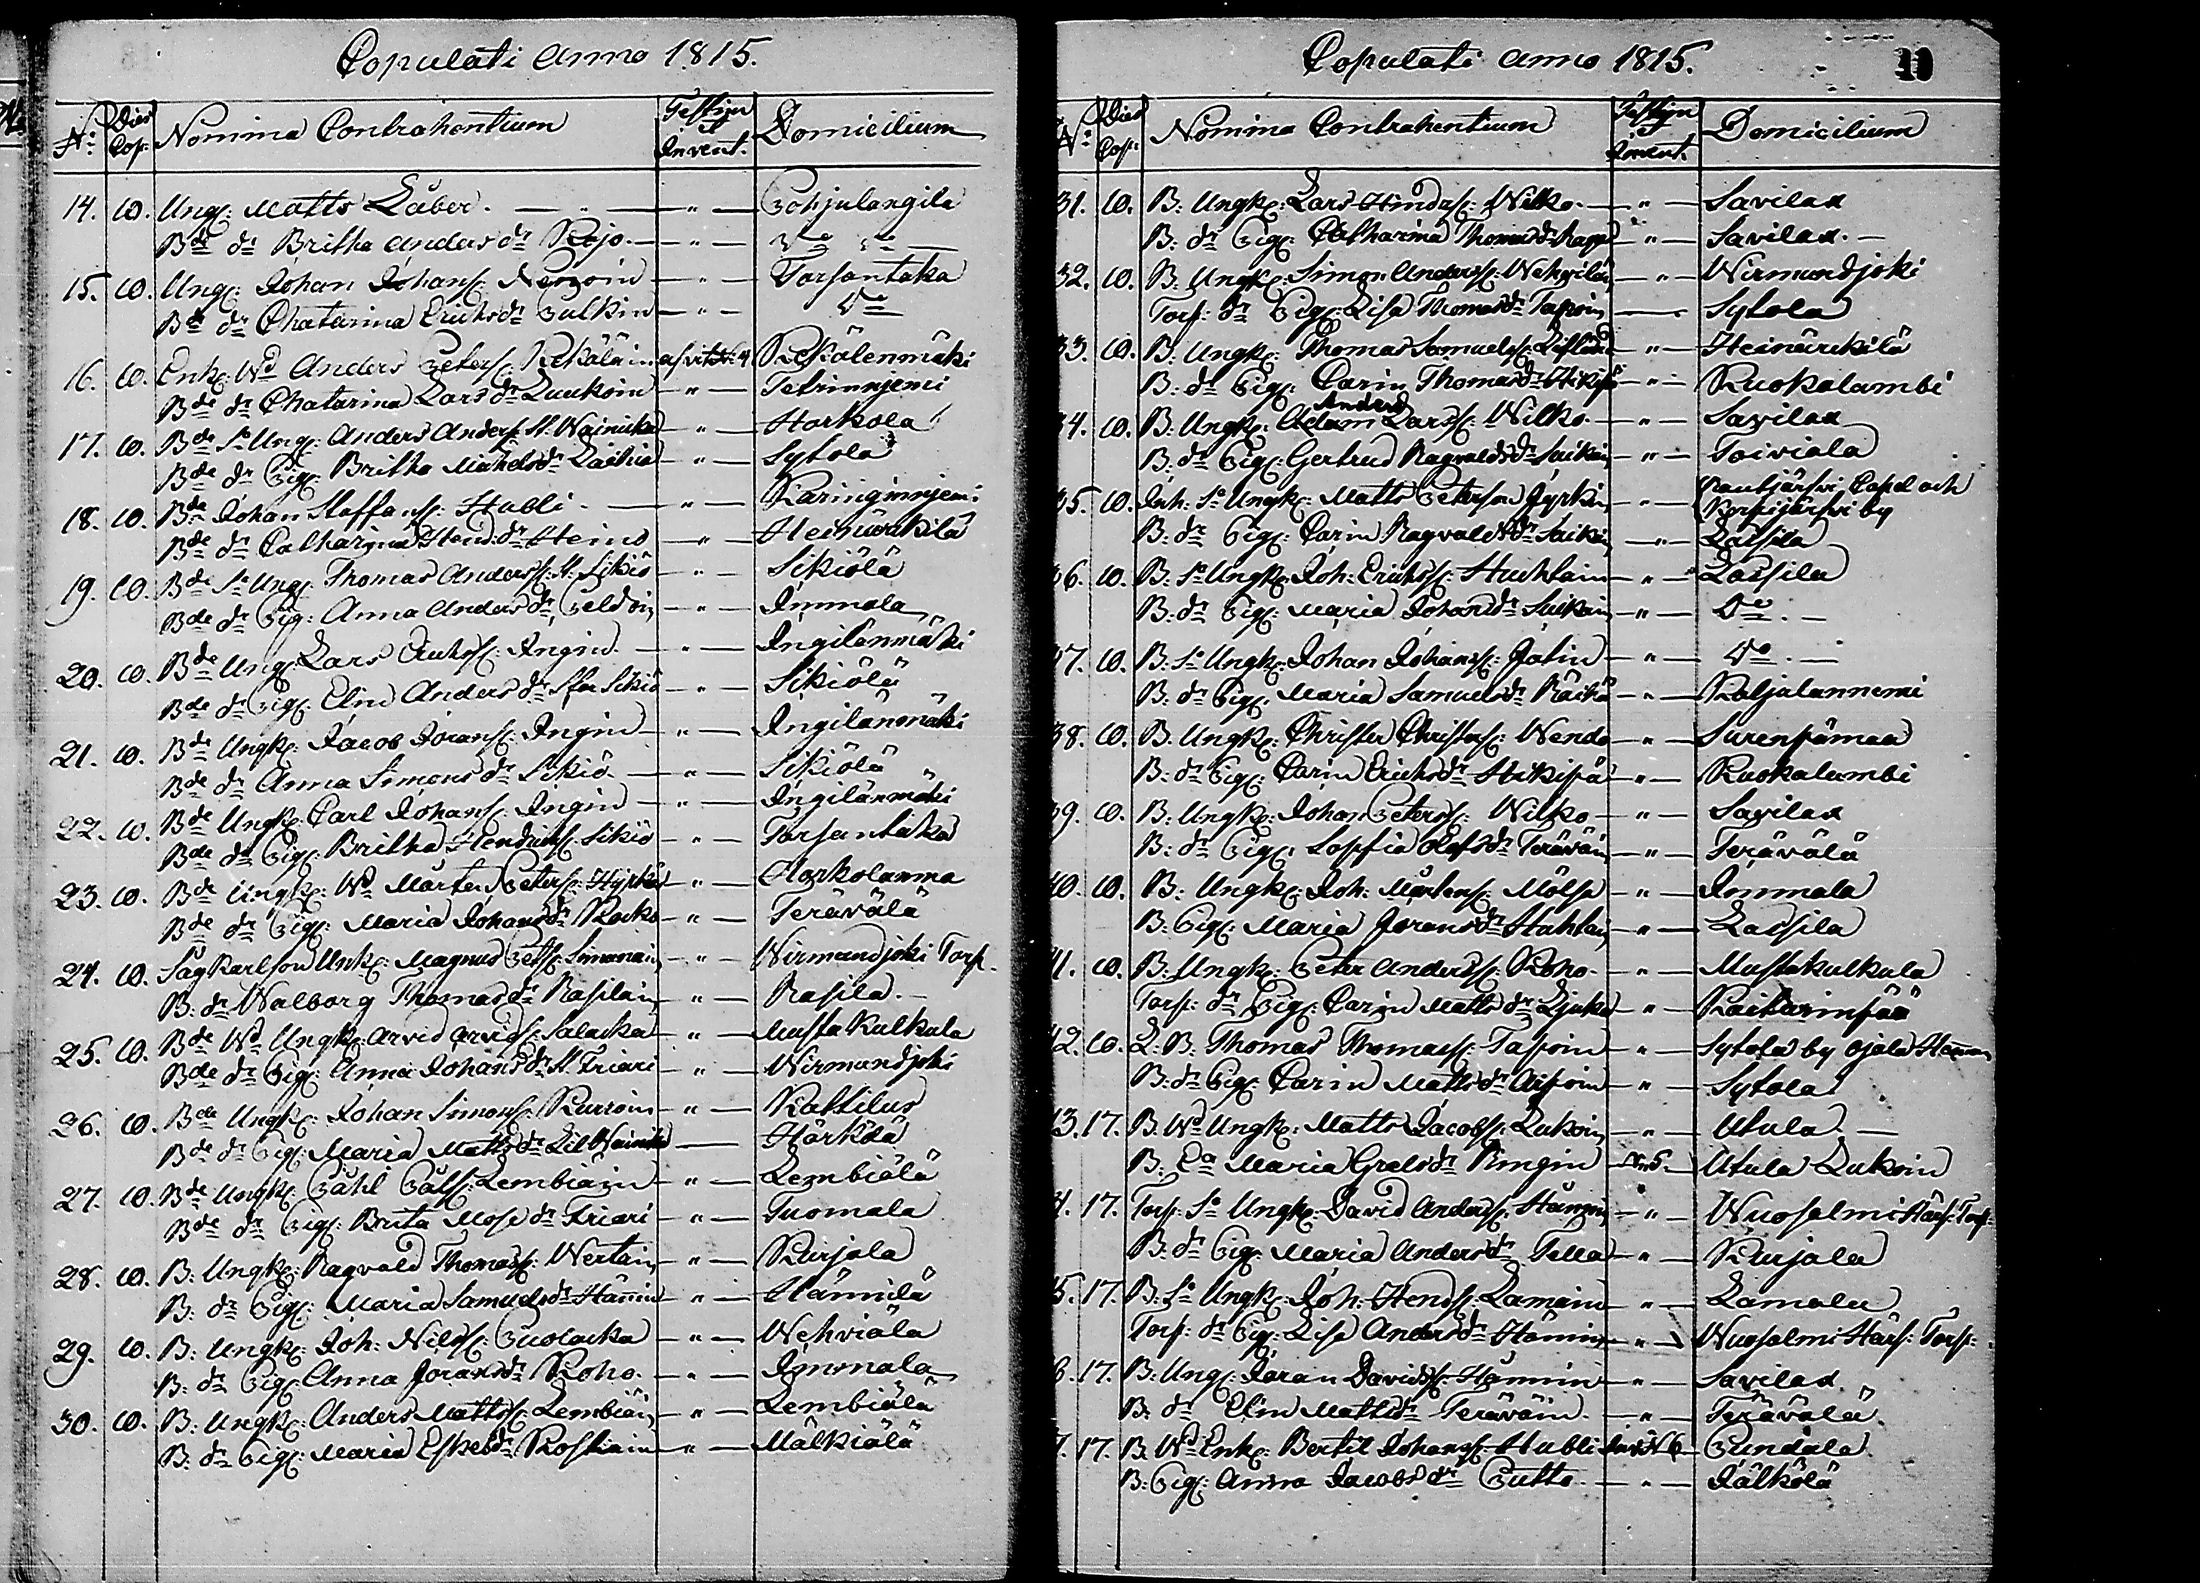 Copulati Anno 1815.
No: Dies Cop: Nomina Contrahentium Testim et Invent. Domicilium
14. 10. Ungk: Matts Läber. — " — Pohjalangila
Bde dr Britha Anders dr Rojo — " — Do Do —
15. 10. Ungk: Johan Johanss: — " — Torsantaka
Bde dr Chatarina Erichs dr Pulkin — " — Do
16. 10. Enk: Wd Anders Peterss: Rekäläin afvit: No 4 Rekälenmäki
Bde dr Chatarina Lars dr Luukoin — " — Tetrinnjemi
17. 10. Bde So Ung: Anders Anderss: St. Wainicka — " — Harkola
Bde dr Pig: Britha Michels dr — " — Sytola
18. 10. Bde Johan Staffanss: Hubli — " — Karinginnjemi
Bde dr Catharina Hend: dr Heino — " — Heinürakilä
19. 10. Bde So Ung: Thomas Anderss: St. Sikiö — " — Sikiölä
Bde dr Pig: Anna Anders dr Peldoin — " — Immala
20. 10. Bde Ung: Lars Erichss: Ingin — " — Ingilänmäki
Bde dr Pig: Elin Anders dr Sikiö — " — Sikiölä
21. 10. Bde Ungk: Jacob Joranss: Ingin — " — Ingilänmäki
Bde dr Anna Simons dr Sikiö — " — Sikiölä
22. 10. Bde Ungk: Carl Johanss: Ingin — " — Ingilänmäki
Bde dr Pig: Britha Hendrichs: Sikiö — " — Torsantaka
23. 10. Bde Ungk: Wd Mårten Peterss: — " — Harkolanma
Bde dr Pig: Maria Johans dr Rocko — " — Terävälä
24. 10. Sag Karlson Unk: Magnus Petss: Simanain — " — Wirmundjoki Torp.
B: dr Walborg Thomas dr Rasilain — " — Rasila. —
25. 10. Bde Wd Ungk: Arvid Arvidss: Salacka — " — Musta Kulkula
Bde dr Pig: Anna Johans dr St. Friari — " — Wirmundjoki
26. 10. Bde Ungk: Johan Simonss: Kurroin — " — Kattilus
Bde dr Pig: Maria Matts dr Lil Wainicka — Härkälä
27. 10. Bde Ungk: Påhl Pålss: Lembiäin — " — Lembiälä
Bde dr Pig: Brita Mose dr Friari — " — Tuomala
28. 10. B: Ungk: Ragvald Thomass: Wertain — " — Kurjala
B: dr Pig: Maria Samuels dr Hännin — " — Hännilä
29. 10. B: Ungk: Joh: Nilss: Puolacka — " — Wehviälä
B: dr Pig: Anna Jorans dr Roho — " — Immala
30. 10. B: Ungk: Anders Mattss: Lembiäin — " — Lembiälä
B: dr Pig: Maria Eskels dr Rostiain — " — Mälkiälä
Copulati anno 1815.
No: Dies Cop: Nomina Contrahentium Testim et Invent. Domicilium
31. 10. B: Ungk: Lars Hindss: Wilko — " — Savilax
B: dr Pig: Catharina Thomas dr — " — Savilax. —
32. 10. B: Ungk: Simon Anderss: Wehviläin — Wirmundjoki
Torp: dr Pig: Lisa Thomas dr Tasroin — Sytola
33. 10. B: Ungk: Thomas Samuelss: — " — Heinürakilä
B: dr Pig: Carin Thomas dr Hikipä — " — Ruokalambi
34. 10. B: Ungk: Anders Adam Larss: Wilko — " — Savilax
B: dr Pig: Gertrud Ragvalds dr Suikain — " — Toiviala
35. 10. Inh: So Ungk: Matts Peterson Jyrkin — " — Rautjärfvi Capel och
Korpijärfvi by
B: dr Pig: Carin Ragvalds dr Suikin — " — Lassila
36. 10. B: So Ungk: Joh: Erichss: Huchtain — " — Lassila
B: dr Pig: Maria Johans dr Suikain — " — Do. —
37. 10. B: So Ungk: Johan Johanss: Jatin — " — Do. —
B: dr Pig: Maria Samuels dr Räikä — " — Koljalannemi
38. 10. B: Ungk: Christer Christerss: Wende — " — Surenpämaa
B: dr Pig: Carin Erichs dr Hikipä — " — Ruokalambi
39. 10. B: Ungk: Johan Peterss: Wilko — " — Savilax
B: dr Pig: Sopfia Olofs dr Teräväin — " — Terävälä
40. 10. B: Ungk: Joh: Mårtenss: Mölsä — " — Immala
B: Pig: Maria Jörans dr Huhtain — " — Lassila
41. 10. B: Ungk: Peter Anderss: Roho — " — Mustakulkula
Torp: dr Pig: Carin Matts dr — " — Raitarinpää
42. 10. L: B: Thomas Thomass: Tasroin — " — Sytola by Ojala Heman
B: dr Pig: Carin Matts dr — " — Sytola
43. 17. B: Wd Ungk: Matts Jacobss: Lukoin — " — Utula. —
B: Ea Maria Grels dr Ringin No 5. Utula Lukoin
4. 17. Torp: So Ungk: David Anderss: Hännin — " — Wuosalmi Härs: Torp:
B: dr Pig: Maria Anders dr Tella — " — Kurjala
5. 17. B: So Ungk: Joh: Hendss: Lamain — " — Lamala
Torp: dr Pig: Lisa Anders dr Hännin — " — Wuosalmi Härs: Torp:
6. 17. B: Ung: Jöran Davidss: Hännin — " — Savilax
B: dr Elin Matts dr Teräväin. — " — Terävälä.
7. 17. B: Wd Enk: Bertil Johanss: Hubli No 6 Pundala
B: Pig: Anna Jacobs dr Putto — " — Jälkölä